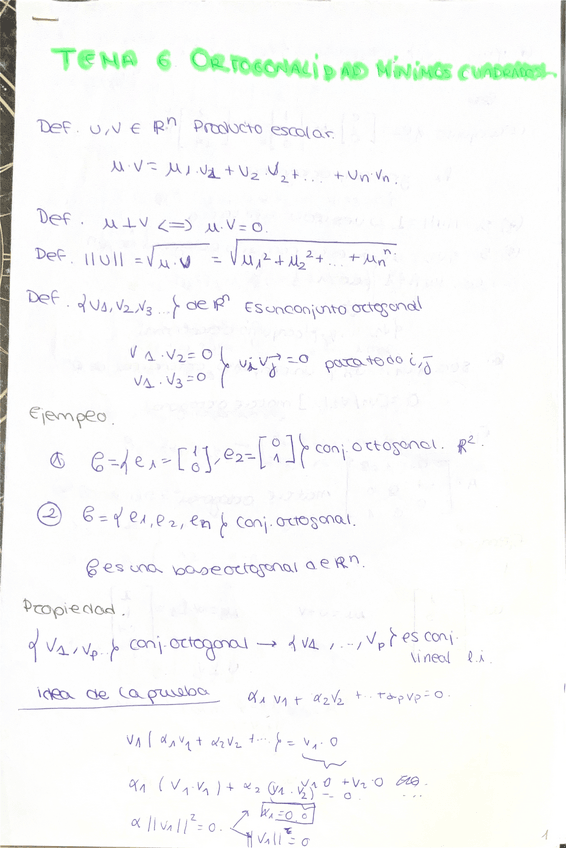 TEMA 6 ORTOGONALIDAD MÍNIMOS CUADRADOS.
Def. U,V ∈ ℝⁿ Producto escolar.
μ·V = μ1·V1 + V2·V2 + ... + Vn·Vn.
Def. μ⊥V <=> μ·V=0.
Def. ||U|| = √μ·V = √μ1² + μ2² + ... + μnⁿ
Def. {V1, V2, V3 ...} de ℝⁿ Es un conjunto octogonal
V1·V2 = 0
V1·V3 = 0 } Vi Vj = 0 para todo i,j
Ejemplo.
① B = {e1 = [1 0], e2 = [0 1]} conj. octogonal. ℝ².
② B = {e1, e2, en} conj. octogonal.
B es una base octogonal de ℝⁿ.
Propiedad.
{V1, Vp..} conj. octogonal → {V1, ..., Vp} es conj.
lineal l.i.
idea de la prueba α1 V1 + α2 V2 + ... + αp Vp = 0.
V1 (α1 V1 + α2 V2 + ...} = V1·0
α1 (V1·V1) + α2 (V1·V2) = 0. V1·0 + V2·0 ...
α ||V1||² = 0. α1 = 0,0
||V1||² = 0
1